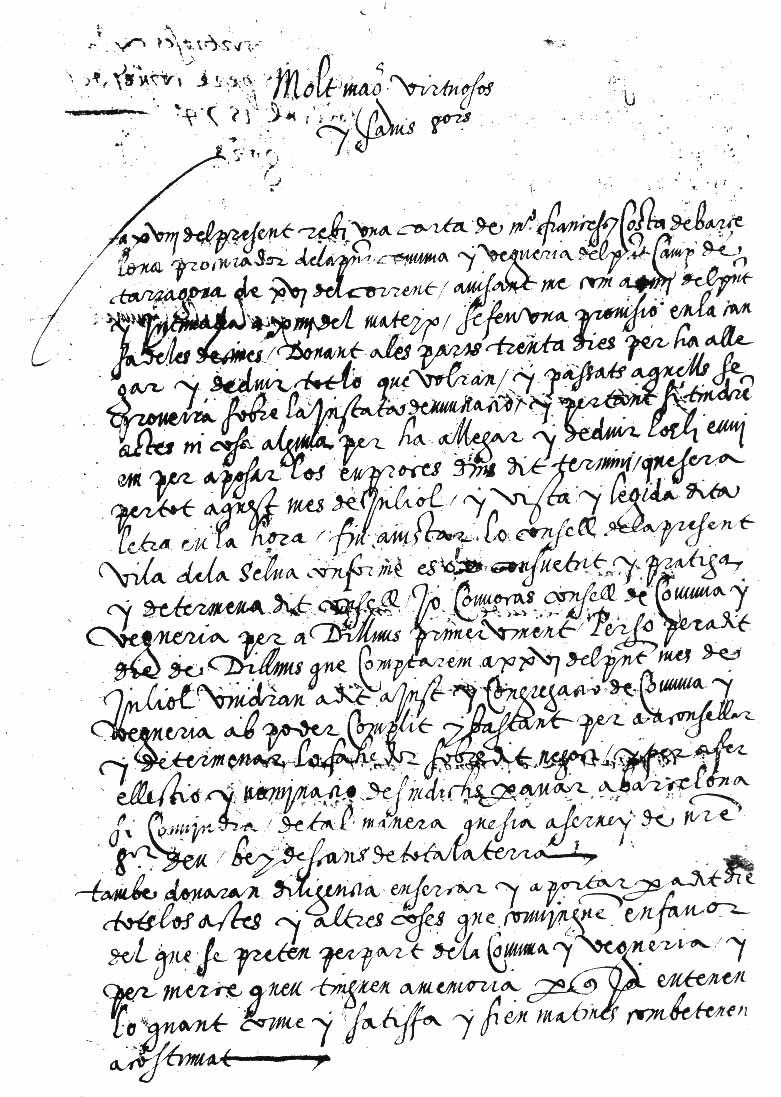 Molt mag.s virtuosos
y savis s.ors
a xviij del present rebi una carta de m.º frances Costa de barce
lona procurador dela pñt comuna y vegueria del pñt Camp de
tarragona de xvi del corrent / avisant me com a del pñt
y Intimada a xiiij del mateyx / se feu una provisio en la cau
sa deles decimes / Donant ales parts trenta dies per ha alle
gar y deduir tot lo que volran / y passats aquells se
proveira sobre la Instada denunciacio / y pertant si tindrē
actes ni cosa alguna per ha allegar y deduir los li envi
em per aposar los en proces dins dit termini / que sera
per tot aquest mes de Juliol / y vista y legida dita
letra en la hora / fiu aiustar lo consell dela present
vila dela Selva conforme es consuetut y pratiga
y determena dit consell / Jo Convocas consell de Comuna y
vegueria per a Dilluns primer vinent / Perso pera dit
die de Dilluns que Comptarem a xxvi del pñt mes de
Juliol vindran a dit aJust y Congregacio de Comuna y
vegueria ab poder Complit y bastant per a aconsellar
y determenar lo fahedor sobre dit negoci / y per a fer
ellectio y nominacio de sindichs p anar a barcelona
si Convindra / de tal manera que sia a servey de nrē
s.or deu / be y descans de tota la terra
tambe donaran diligencia en sercar y aportar p a dit die
tots los actes y altres coses que convinguē en favor
del que se preten per part de la Comuna y vegueria / y
per merce queu tinguen a memoria p q Ja entenen
lo quant conve y satisfa y sien matines com be tenen
acostumat